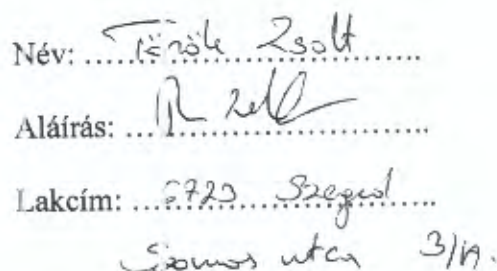 Név: Török Zsolt
Aláírás:
Lakcím: 6723 Szeged
Somos utca 3/A.